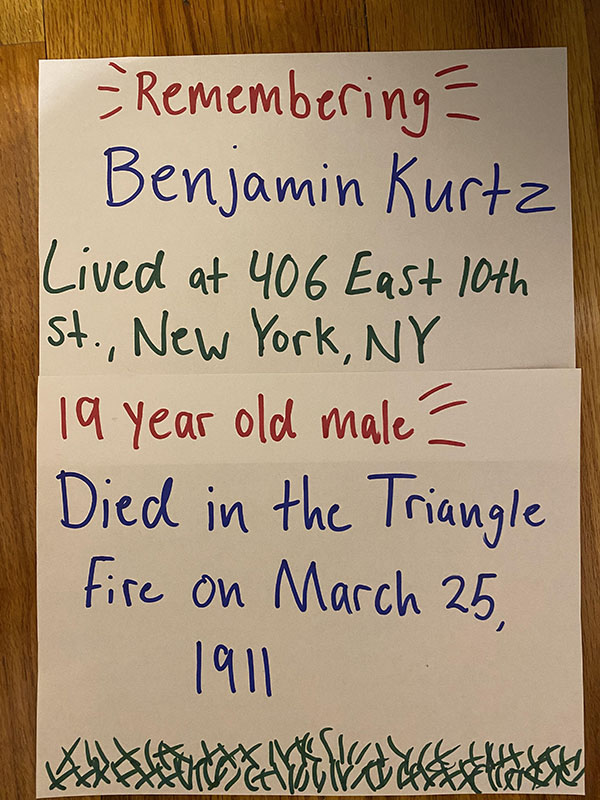 Remembering
Benjamin Kurtz
Lived at 406 East 10th
st., New York, NY
19 year old male
Died in the Triangle
Fire on March 25,
1911